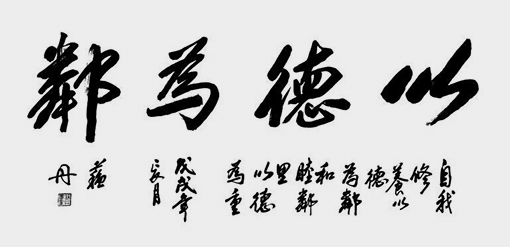 以德為鄰
自我
修
養以
德
為鄰
和
睦鄰
里
以德
為重
戊戌年
辰月
蘇
丹